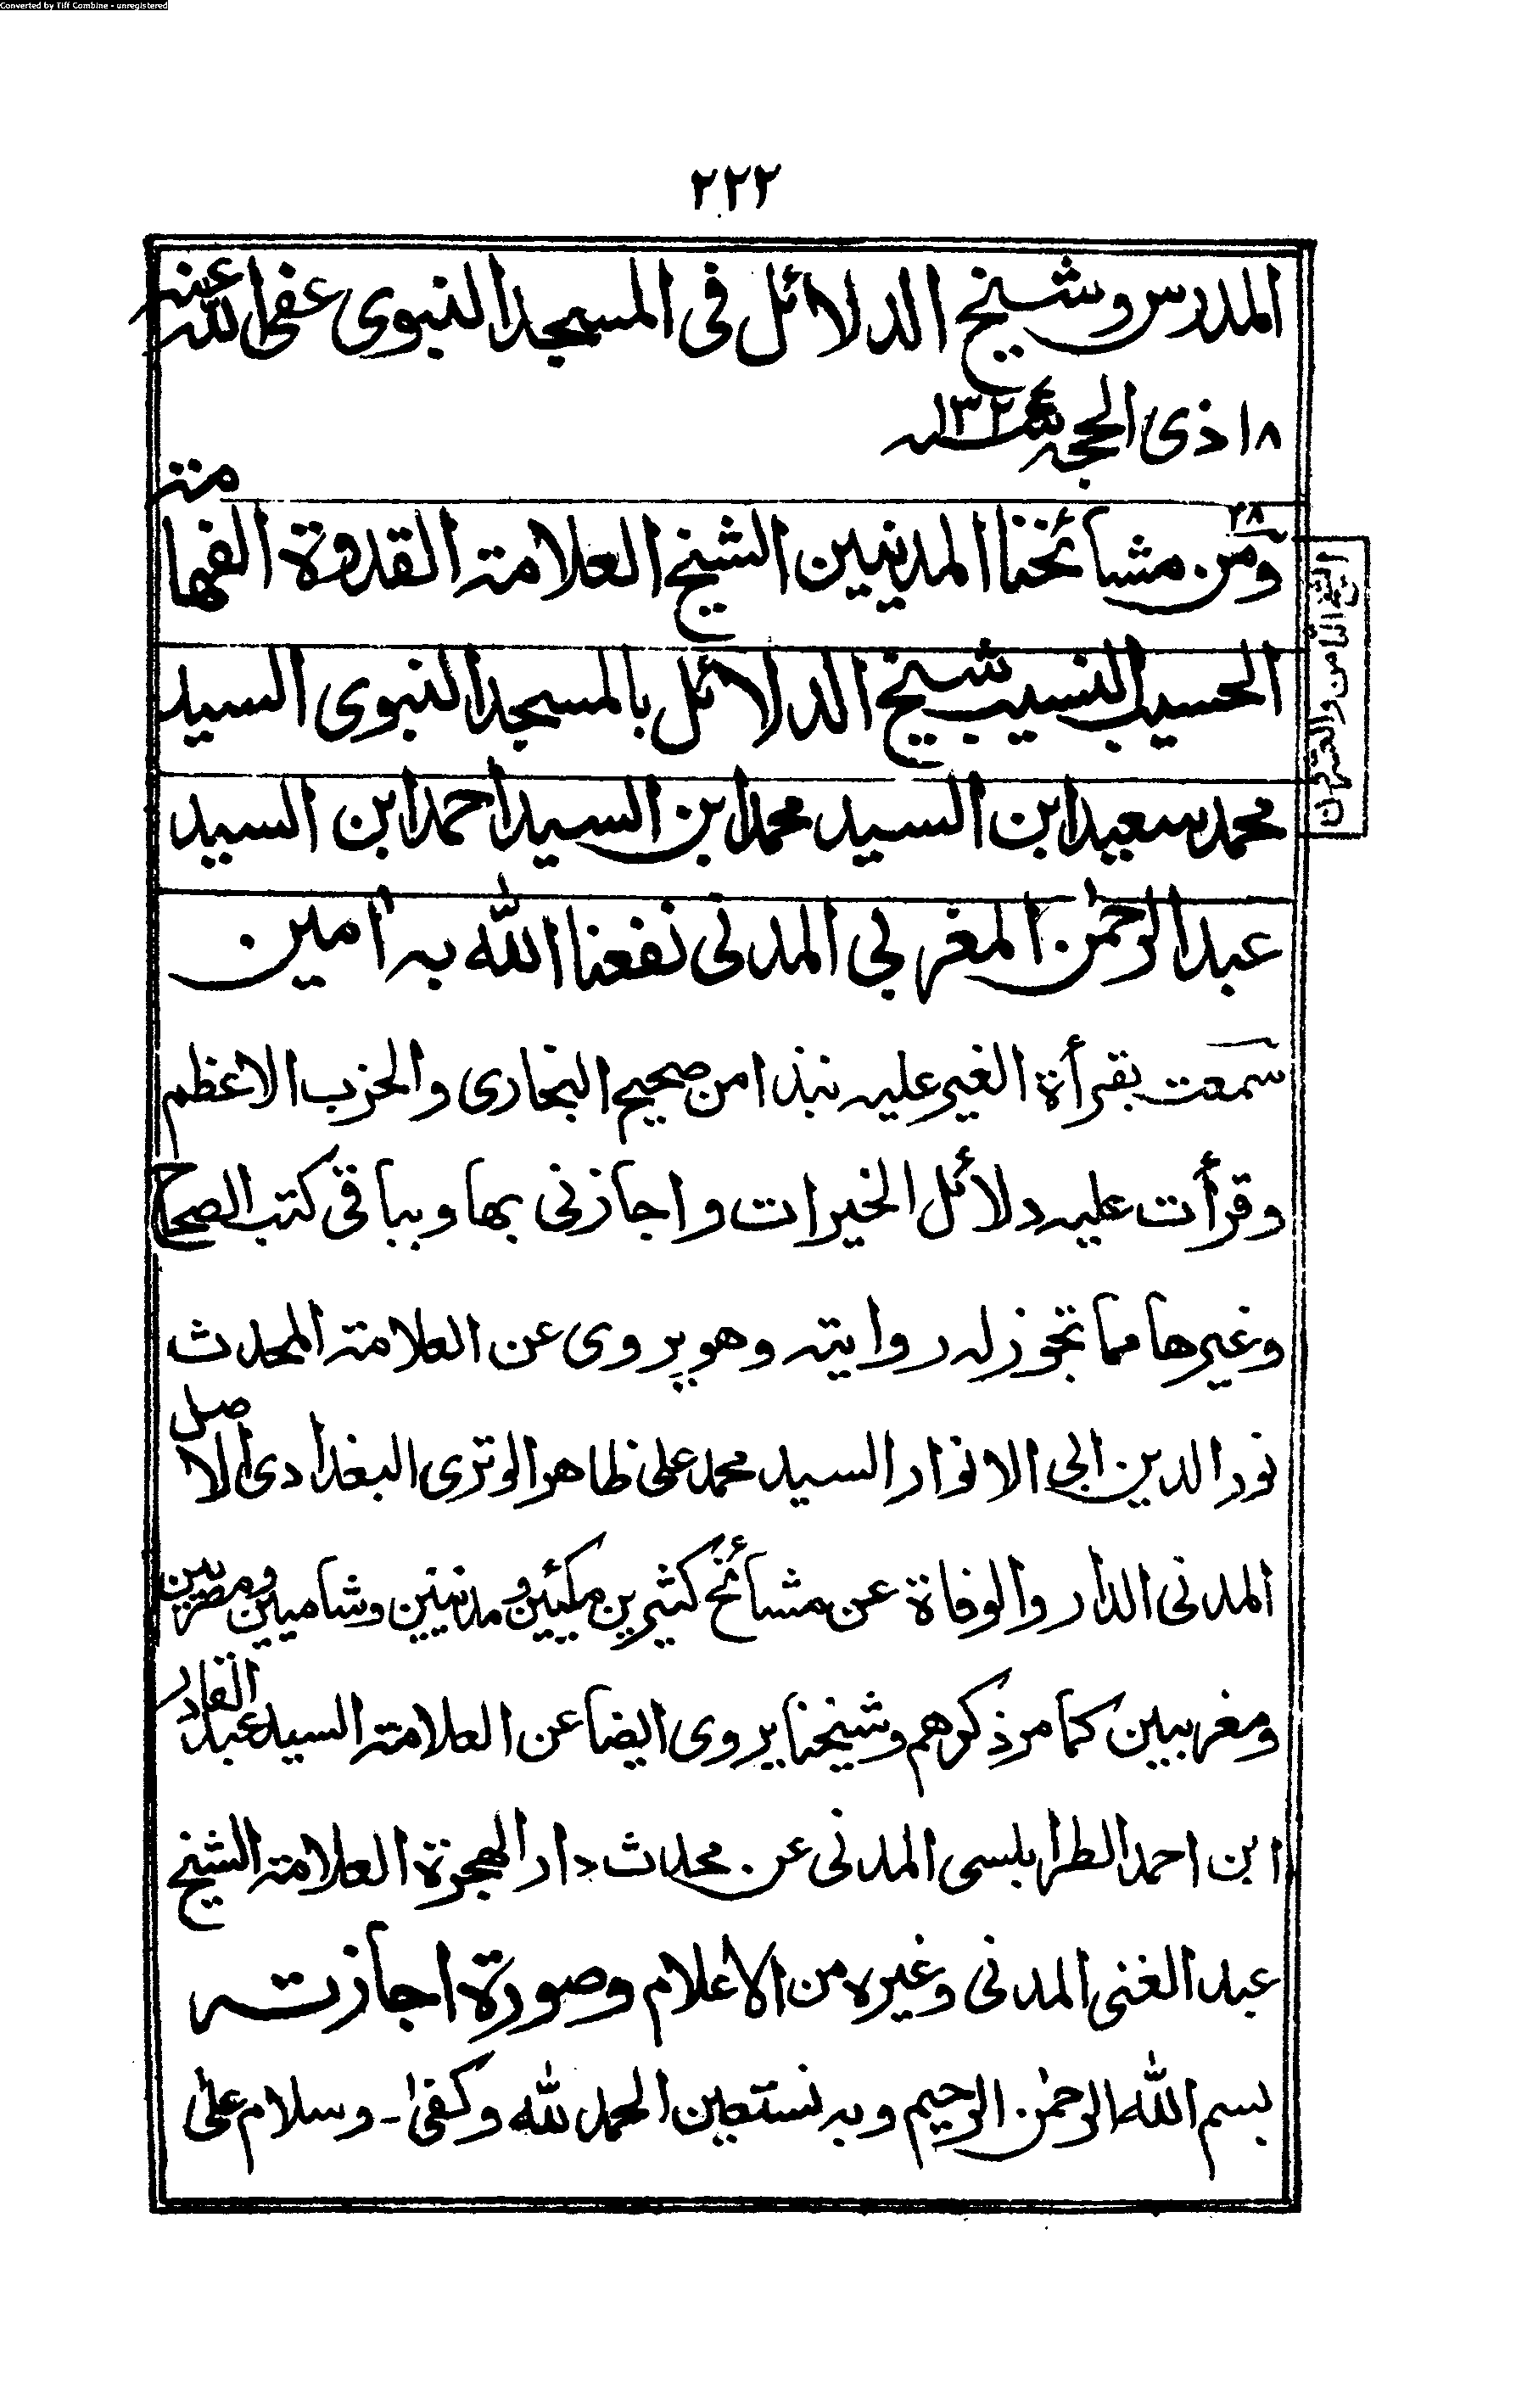 Converted by Tiff Combine - unregistered
٢٢٢
المدرس وشيخ الدلائل فى المسجد النبوى عفى الله عنه
١٨ ذى الحجه سنه
٢٨
ومن مشائخنا المدنيين الشيخ العلامة القدوة الفهامة
الحسيب النسيب شيخ الدلائل بالمسجد النبوى السيد
محمد سعيد ابن السيد محمد ابن السيد احمد ابن السيد
عبد الرحمٰن المغربى المدنى نفعنا الله به اٰمين
الشيخ الثامن والعشرون
سمعت بقرأة الغير عليه نبذا من صحيح البخارى والحزب الاعظم
وقرأت عليه دلائل الخيرات واجازنى بها وبباقى كتب الصحاح
وغيرها مما تجوز له روايته وهو يروى عن العلامة المحدث
نور الدين ابى الانوار السيد محمد على ظاهر الوترى البغدادى الاصل
المدنى الدار والوفاة عن مشائخ كثيرين مكيين ومدنيين وشاميين ومصريين
ومغربيين كما مر ذكرهم وشيخنا يروى ايضا عن العلامة السيد عبد القادر
ابن احمد الطرابلسى المدنى عن محدث دار الهجرة العلامة الشيخ
عبد الغنى المدنى وغيره من الاعلام وصورة اجازته
بسم الله الرحمٰن الرحيم وبه نستعين الحمد لله وكفىٰ - وسلام علىٰ